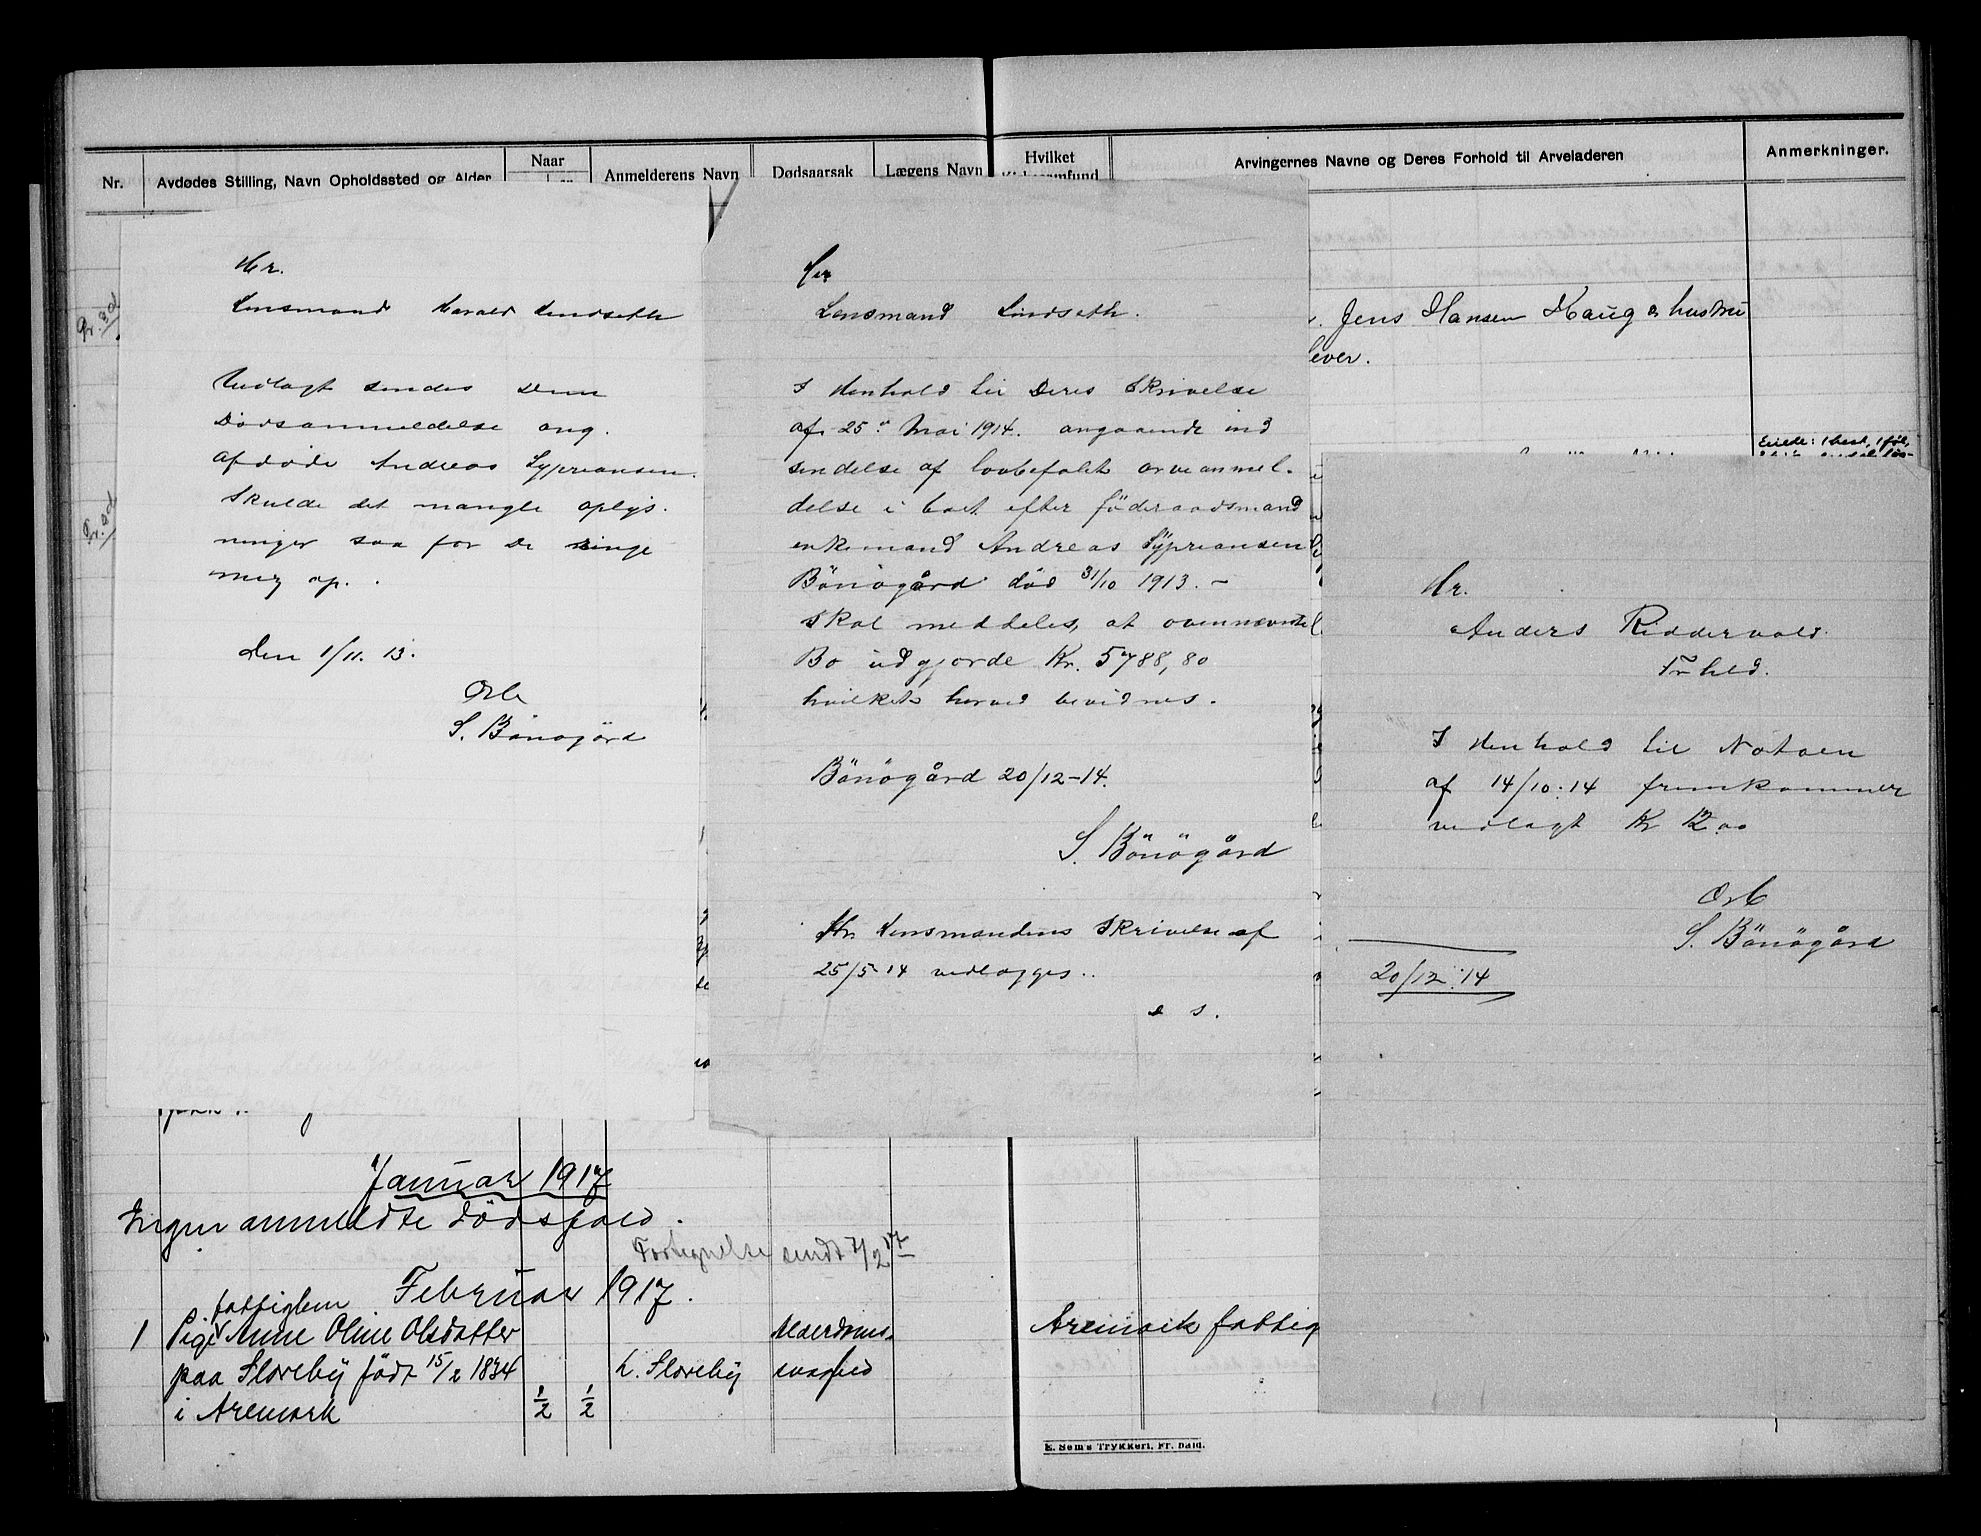 Nr.
Avdødes Stilling, Navn Opholdssted og Alder
Naar
Anmelderens Navn
Dødsaarsak
Lægens Navn
Hvilket
Arvingernes Navne og Deres Forhold til Arveladeren
Anmerkninger.
Hr.
Lensmand Harald Lindseth
Vedlagt sendes Dem
Dødsanmeldelse ang.
afdøde Andreas Sypriansen.
Skulde det mangle oplys.
ninger saa for De ringe
mig op.
Den 1/11. 13.
Arb
S. Bönögård
Hr
Lensmand Lindseth.
I Henhold til Deres Skrivelse
af 25. Mai 1914. angaaende ind
sendelse af lovbefalt arveanmel.
delse i boet efter föderaadsmand
enkemand Andreas Sypriansen
Bönögård död 31/10 1913. –
Skal meddeles, at ovennævnte
Bo udgjorde Kr. 5788,80
hvilket herved bevidnes.
Bönögård 20/12–14.
S. Bönögård
Hr Lensmandens Skrivelse af
25/5–14 vedlægges..
D S.
Jens Hansen Haug & hustru
lever.
Eiede: 1 hest, 1 føl,
Hr.
Anders Riddervold.
Fr.hld.
I Henhold til Notaen
af 14/10.14 fremkommer
vedlagt Kr 12.00
Arb
S. Bönögård
20/12.14
Januar 1917
Ingen anmeldte dödsfald.
Fortegnelse sendt 7/2 17
Februar 1917.
fattiglem
1 Pige Anne Oline Olsdatter
paa Sloreby födt 15/2 1834
i Aremark
1/2 1/2
L. Sloreby
Alderdoms-
svaghed
Aremark fattig
E. Sem's Trykkeri, Fr.hald.